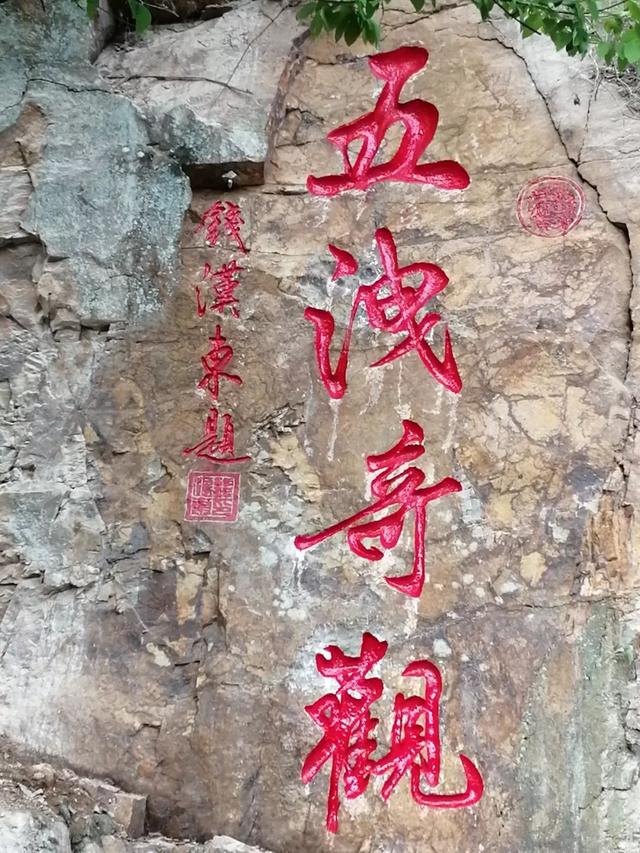 五洩奇觀
錢漢東題